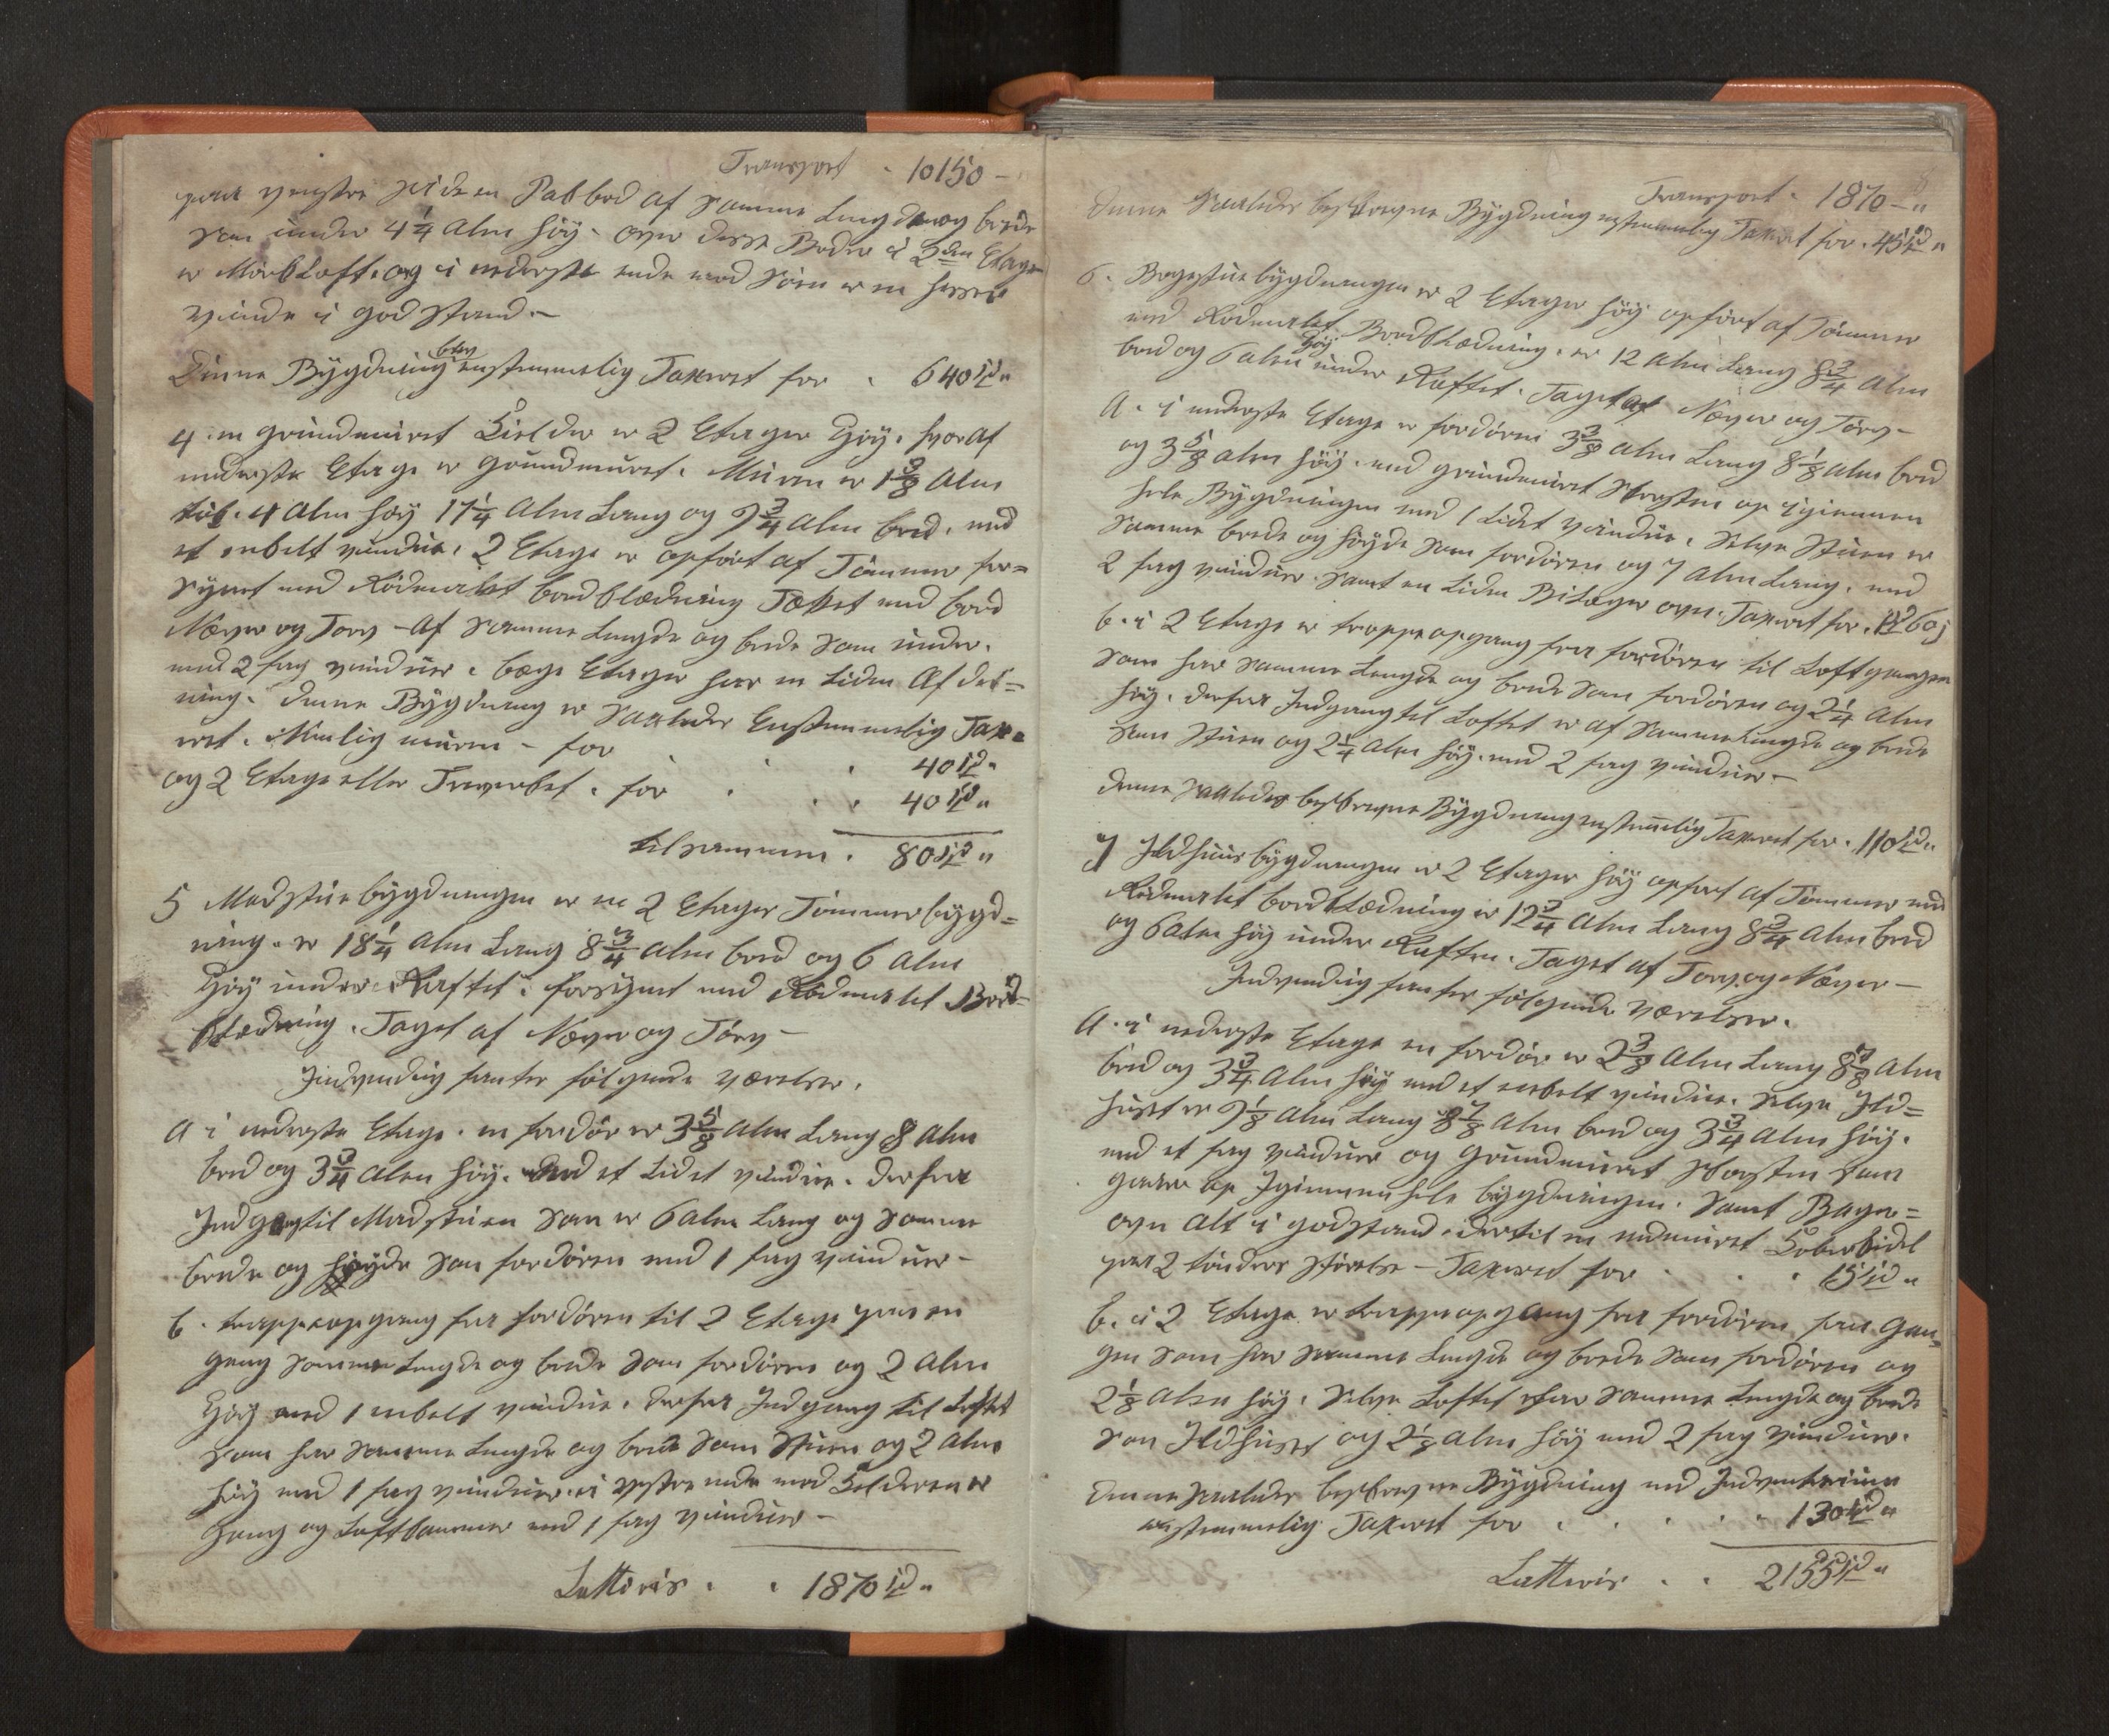 Transport . 10150 –
paa venstre side en Pakbod af Samme Lengde og brede
som under 4 1/4 Alen høy – over disse Boder i 3die Etage
er Mørkloft. og i nederste ende mod Søen er en hisse
vinde i god Stand. –
Denne Bÿgdning blev enstemmelig Taxeret for . 640 rd "
4. en grundmuret Kielder er 2 Etager Høy. hvoraf
nederste Etage er Grundmuret. Muren er 1 3/8 Alen
tÿk. 4 Alen høy 17 1/4 Alen Lang og 9 3/4 Alen bred. med
et enkelt vindue. 2 Etage er opført af Tømmer for=
sÿnet med Rødmalet bordklædning Tækket med bord
Næver og Torv – Af Samme Lengde og brede som under.
med 2 fag vinduer. begge Etager har en Liden Afdel=
ning. Denne Bÿgdning er Saaledes Enstemmelig Tax=
eret. Nemlig muren – for . . 40 rd "
og 2 Etage eller Træverket. for . . . 40 rd "
tilsammen . 80 rd "
5 Madstuebÿgdningen er en 2 Etager Tømmerbÿgd=
ning. er 18 1/4 Alen Lang 8 3/4 Alen bred og 6 Alen
Høy under Raftet. forsÿnet med Rødmalet Bord=
klædning. Taget af Næver og Tørv –
Indvendig fantes følgende værelser.
A i nederste Etage. en fordør er 3 5/8 Alen Lang 8 Alen
bred og 3 3/4 Alen høy. med et Lidet vindue. derfra
Indgang til Madstuen som er 6 Alen Lang og Samme
brede og høyde som fordøren med 1 fag vinduer –
b. trappeopgang fra fordøren til 2 Etage paa en
gang Samme Lengde og brede Som fordøren og 2 Alen
Høy med 1 enkelt vindue. derfra Indgang til Loftet
som har Samme Lengde og brede Som Stuen og 2 Alen
høy med 1 fag vinduer. i vestre ende mod Kielderen er
Gang og Loftkammer med 1 fag vinduer –
Latteris . . 1870 rd "
Transport . 1870 – "
Denne Saaledes beskrevne Bÿgdning enstemmelig Taxeret for . 45 rd "
6. Borgestuebÿgdningen er 2 Etager høy opført af Tømmer
med Rødmalet Bordklædning. er 12 Alen Lang 8 3/4 Alen
bred og 6 Alen høy under Raftet. Taget af Næver og Törv –
A. i nederste Etage er fordøren 3 3/8 Alen Lang 8 1/8 Alen bred
og 3 5/8 Alen høy. med grundmuret Skorsten op igiennem
hele Bÿgdningen med 1 Lidet vindue. Selve Stuen er
Samme brede og høyde Som fordøren og 7 Alen Lang. med
2 fag vinduer. Samt en Liden Bilægerovn. Taxeret for .
b. i 2 Etage er trappeopgang fra fordøren til Loftgangen
Som har Samme Lengde og brede Som fordøren og 2 1/4 Alen
høy. derfra Indgang til Loftet er af Samme Lengde og brede
som Stuen og 2 1/4 Alen høy. med 2 fag vinduer –
denne Saaledes beskrevne Bÿgdning enstemmelig Taxeret for . 110 rd "
7 Ildhuusbÿgdningen er 2 Etager høy opført af Tømmer med
Rødmalet bordklædning er 12 3/4 Alen Lang 8 3/4 Alen bred
og 6 Alen høy under Raften. Taget af Torv og Næver –
Indvendig fantes følgende værelser.
A. i nederste Etage en fordør er 2 3/8 Alen Lang 8 7/8 Alen
bred og 3 3/4 Alen høy med et enkelt vindue. Selve Ild=
huset er 9 1/8 Alen Lang 8 7/8 Alen bred og 3 3/4 Alen høy.
med et fag vinduer og Grundmuret Skorsten Som
gaaer op Igiennem hele bÿgdningen. Samt Bager=
ovn Alt i god stand. dertil en indmuret Kobberkidel
paa 2 tønders Størelse – Taxeret for . . . 15 rd "
b. i 2 Etage er trappeopgang fra fordøren paa Gan=
gen Som har Samme Lengde og brede Som fordøren og
2 1/8 Alen høy. Selve Loftet har Samme Lengde og brede
Som Ildhuset og 2 1/8 Alen høy med 2 fag vinduer.
denne Saaledes beskrevne Bÿgdning med Indventarium
enstemmelig Taxeret for . . . . . 130 rd "
Latteris . . 2155 rd "